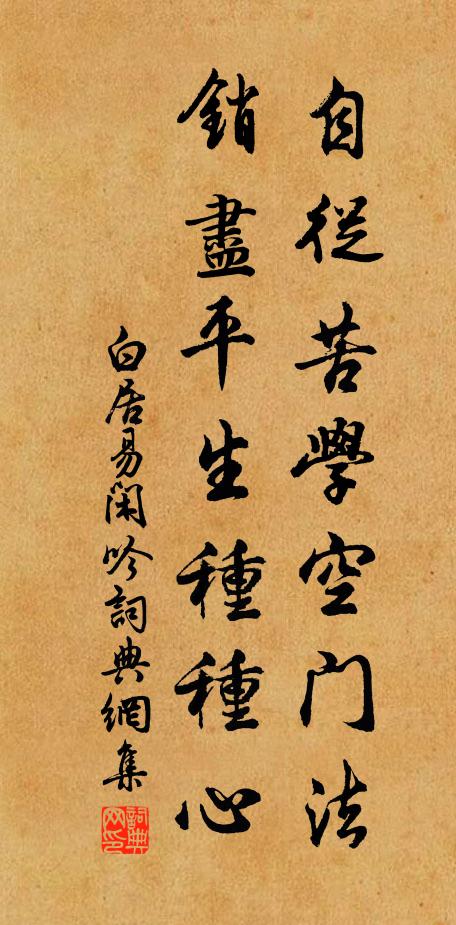 自從苦學空门法
銷盡平生種種心
白居易闲吟詞典網集
詞典网印